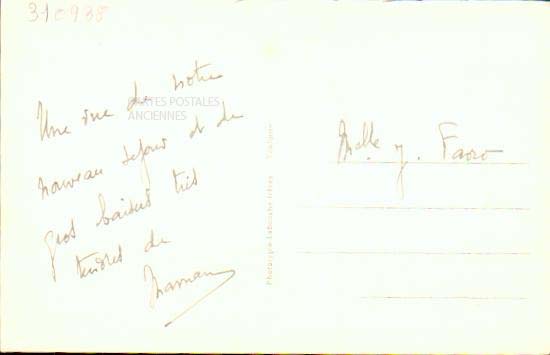 310938
Une vue de notre
CARTES POSTALES
ANCIENNES
nouveau séjour et de
gros baisers très
tendres de
Maman
Phototypie Labouche Frères Toulouse
Melle y. Favro